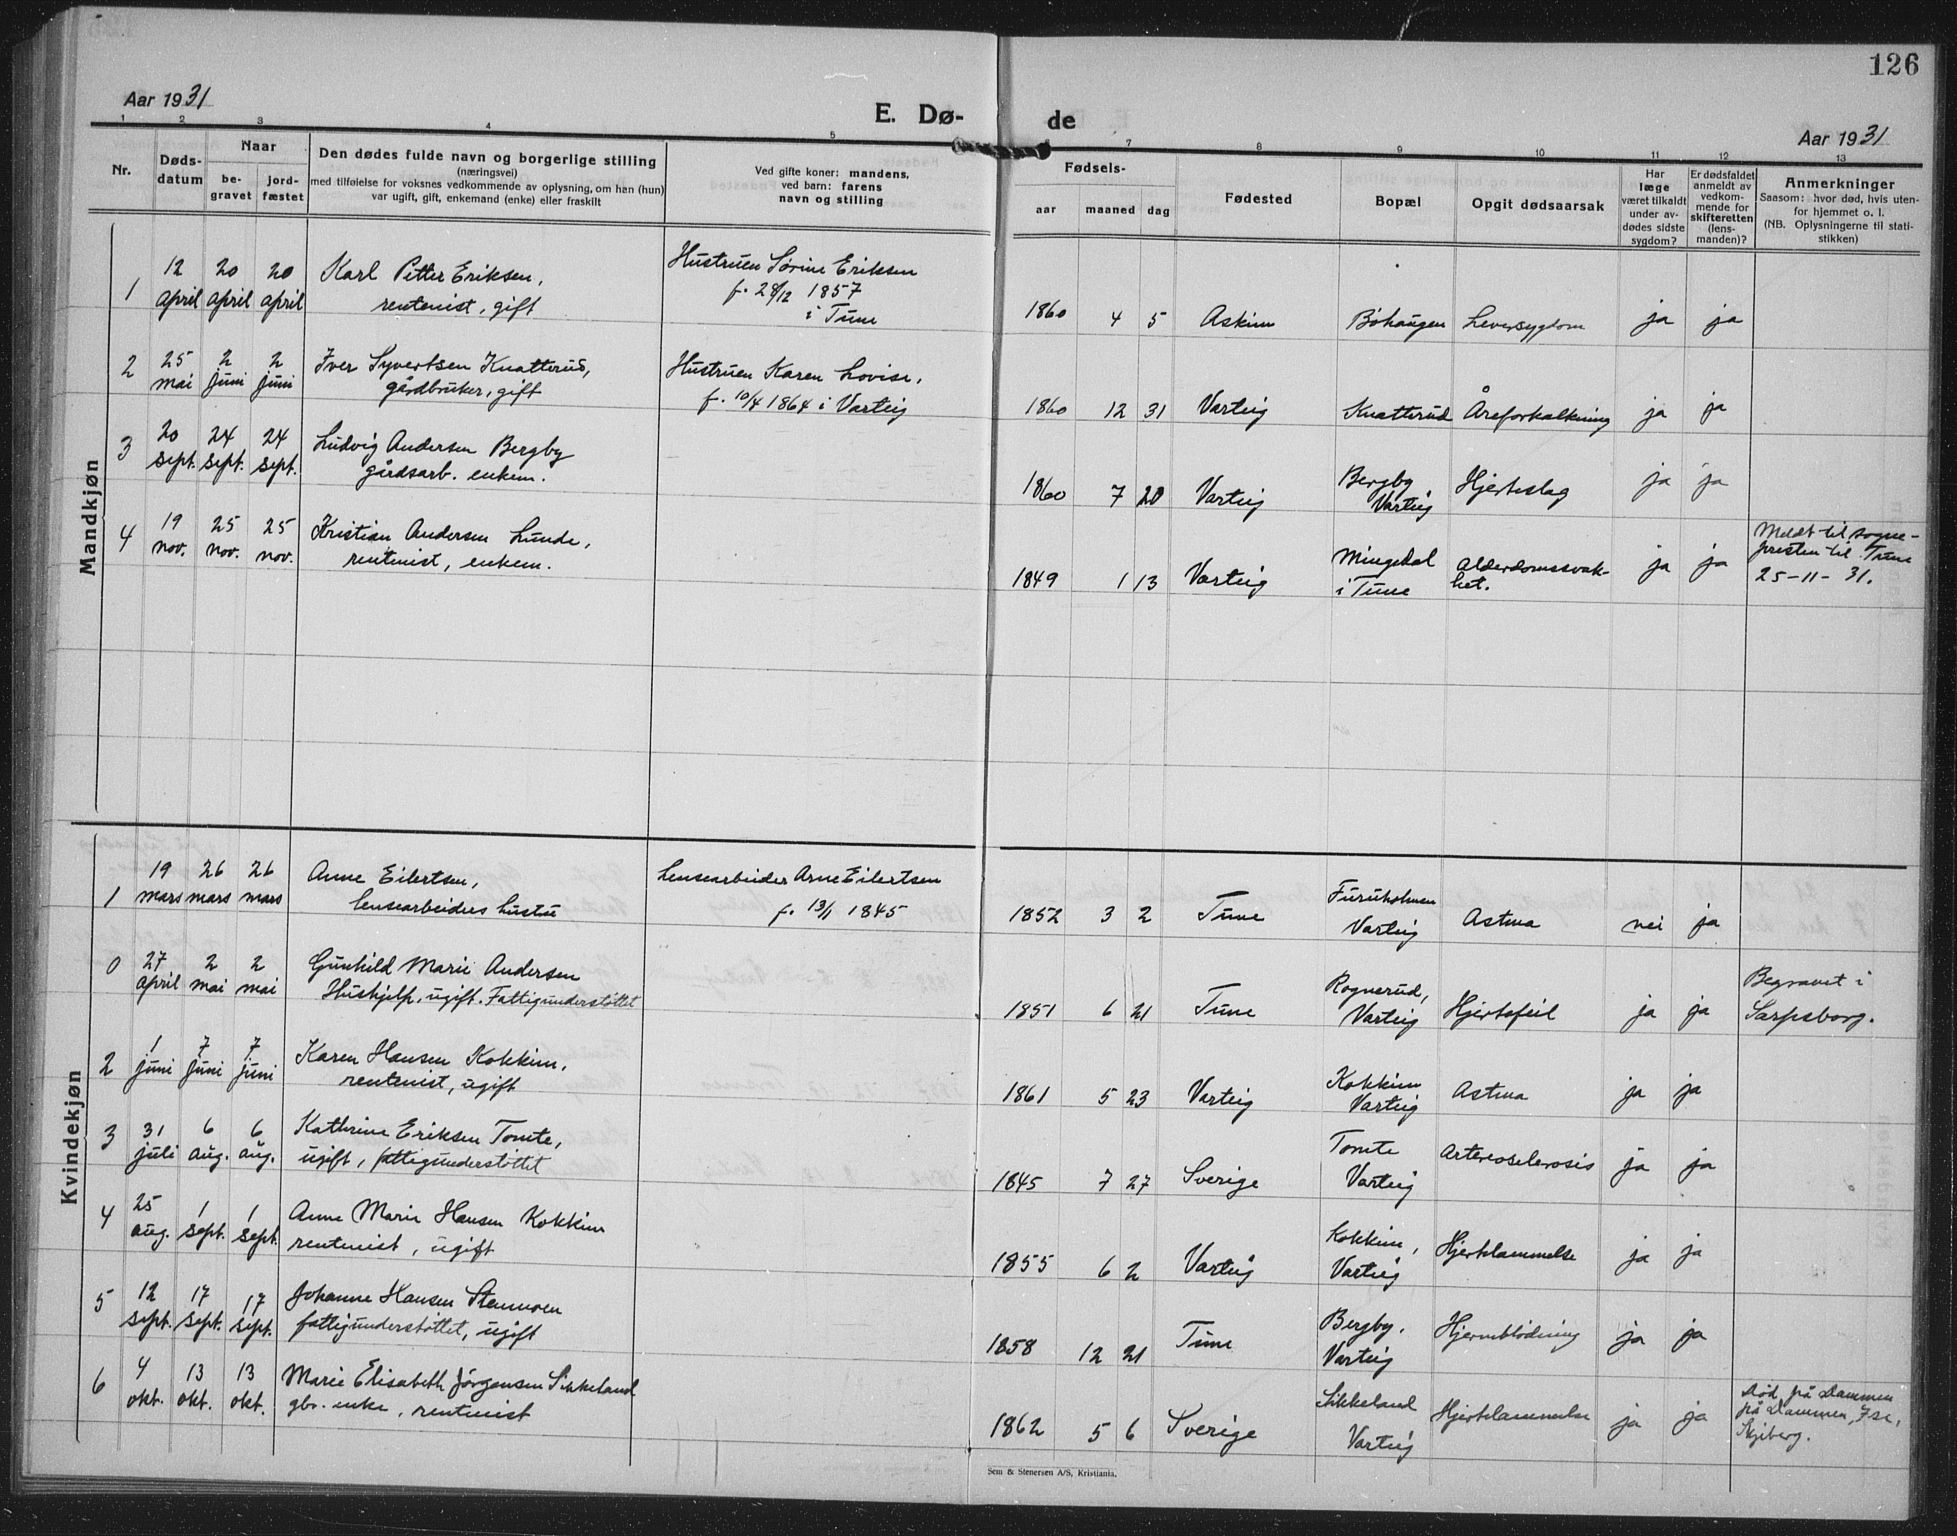 126
Aar 1931
E. Dø- de
Aar 1931
1 2 3 4 5 7 8 9 10 11 12 13
Nr.
Døds-
datum
Naar
be-
gravet
jord-
fæstet
Den dødes fulde navn og borgerlige stilling
(næringsvei)
med tilføielse for voksnes vedkommende av oplysning, om han (hun)
var ugift, gift, enkemand (enke) eller fraskilt
Ved gifte koner: mandens,
ved barn: farens
navn og stilling
Fødsels-
aar maaned dag
Fødested
Bopæl
Opgit dødsaarsak
Har
læge
været tilkaldt
under av-
dødes sidste
sygdom?
Er dødsfaldet
anmeldt av
vedkom-
mende for
skifteretten
(lens-
manden)?
Anmerkninger
Saasom: hvor død, hvis uten-
for hjemmet o. l.
(NB. Oplysningerne til stati-
stikken)
Mandkjøn
1
12 april
20 april
20 april
Karl Petter Eriksen,
rentenist, gift
Hustruen Sørine Eriksen
f. 28/12 1857
i Tune
1860 4 5 Askim Bøhaugen Leversygdom ja ja
2
25 mai
2 juni
2 juni
Iver Syvertsen Knatterud,
gårdbruker, gift
Hustruen Karen Lovise,
f. 10/4 1864 i Varteig
1860 12 31 Varteig Knatterud Åreforkalkning ja ja
3
20 sept.
24 sept.
24 sept.
Ludvig Andersen Bergby
gårdsarb. enkem.
1860 7 20 Varteig Bergby
Varteig
Hjerteslag ja ja
4
19 nov.
25 nov.
25 nov.
Kristian Andersen Lunde,
rentenist, enkem.
1849 1 13 Varteig Mingedal
i Tune
Alderdomssvak-
het.
ja ja
Meldt til sogne-
presten til Tune
25-11-31.
Kvindekjøn
1
19 mars
26 mars
26 mars
Anne Eilertsen,
lensearbeiders hustru
Lensearbeider Arne Eilertsen
f. 13/1 1845
1852 3 2 Tune Furuholmen
Varteig
Astma nei ja
0
27 april
2 mai
2 mai
Gunhild Marie Andersen
Hushjelp, ugift. Fattigunderstøttet
1851 6 21 Tune Rognerud,
Varteig
Hjertefeil ja ja
Begravet i
Sarpsborg.
2
1 juni
7 juni
7 juni
Karen Hansen Kokkim,
rentenist, ugift
1861 5 23 Varteig Kokkim
Varteig
Astma ja ja
3
31 juli
6 aug.
6 aug.
Kathrine Eriksen Tomte,
ugift, fattigunderstøttet
1845 7 27 Sverige Tomte
Varteig
Arteriosclerosis ja ja
4
25 aug.
1 sept.
1 sept.
Anne Marie Hansen Kokkim
rentenist, ugift
1855 6 2 Varteig Kokkim,
Varteig
Hjertelammelse ja ja
5
12 sept.
17 sept.
17 sept.
Johanne Hansen Stenmoen
fattigunderstøttet, ugift
1858 12 21 Tune Bergby,
Varteig
Hjerneblødning ja ja
6
4 okt.
13 okt.
13 okt.
Marie Elisabeth Jørgensen Sikkeland
gbr. enke, rentenist
1862 5 6 Sverige Sikkeland
Varteig
Hjertelammelse ja ja
Død på Dammen
på Dammen, Ise,
Skjeberg.
Sem & Stenersen A/S, Kristiania.